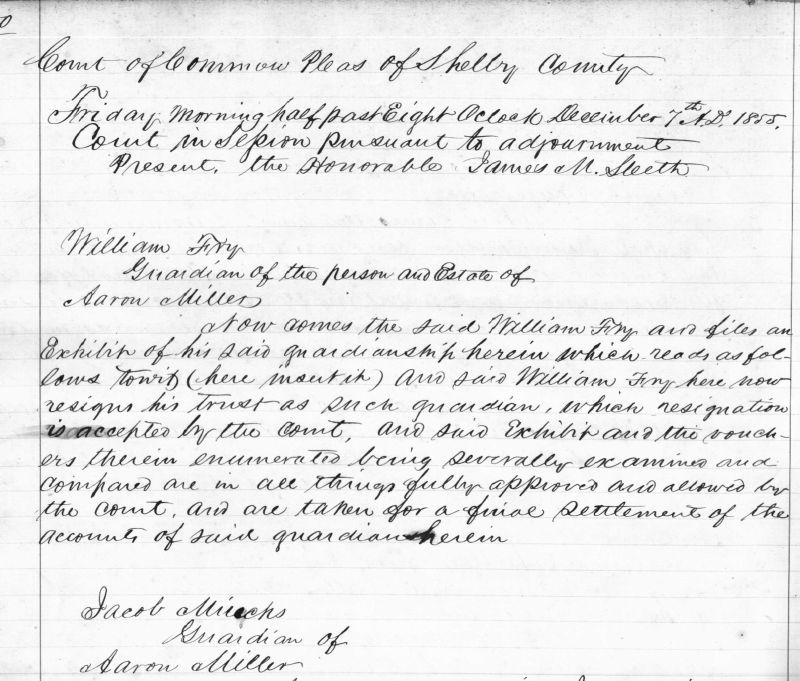 Court of Common Pleas of Shelby County
Friday morning half past Eight Oclock December 7th A.D. 1855.
Court in Session pursuant to adjournment
Present, the Honorable James M. Sleeth
William Fry
Guardian of the person and Estate of
Aaron Miller
Now comes the said William Fry and files an
Exhibit of his said guardianship herein which reads as fol-
lows towit (here insert it) And said William Fry here now
resigns his trust as such guardian, which resignation
is accepted by the court, and said Exhibit and the vouch-
ers therein enumerated being severally examined and
compared are in all things fully approved and allowed by
the court, and are taken for a final settlement of the
accounts of said guardian herein
Jacob
Guardian of
Aaron Miller